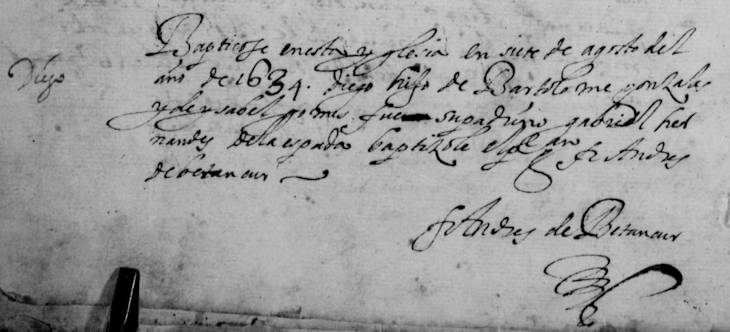 Diego
Baptiçose en esta yglesia en siete de agosto del
año de 1634. diego hijo de Bartolome gonzales
y de ysabel gomes fue su padrino gabriel her
nandes de la espada baptizole el pe fr Andres
de betancur
fr Andres de Betancur